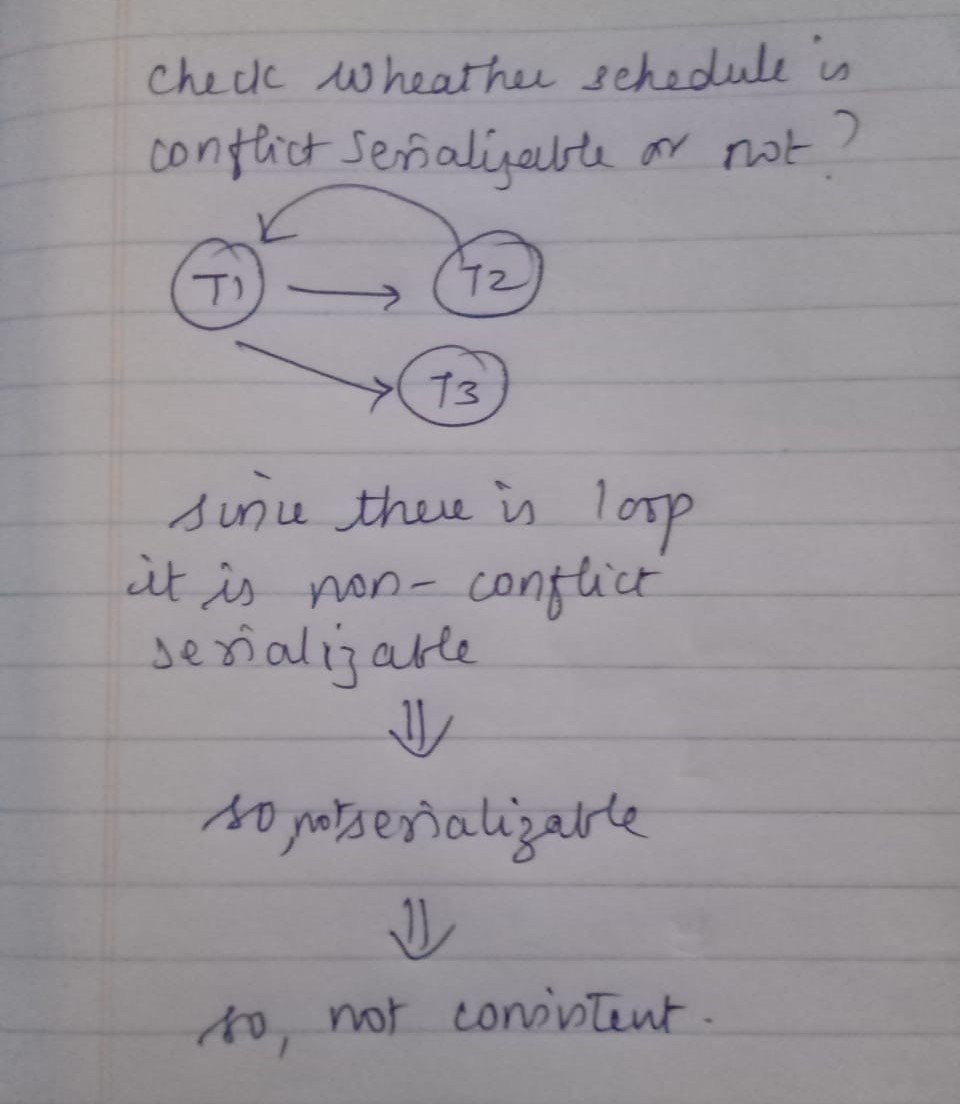 check wheather schedule is
conflict serializable or not?
T1
T2
T3
since there is loop
it is non-conflict
serializable
⇓
so, not serializable
⇓
so, not consistent.